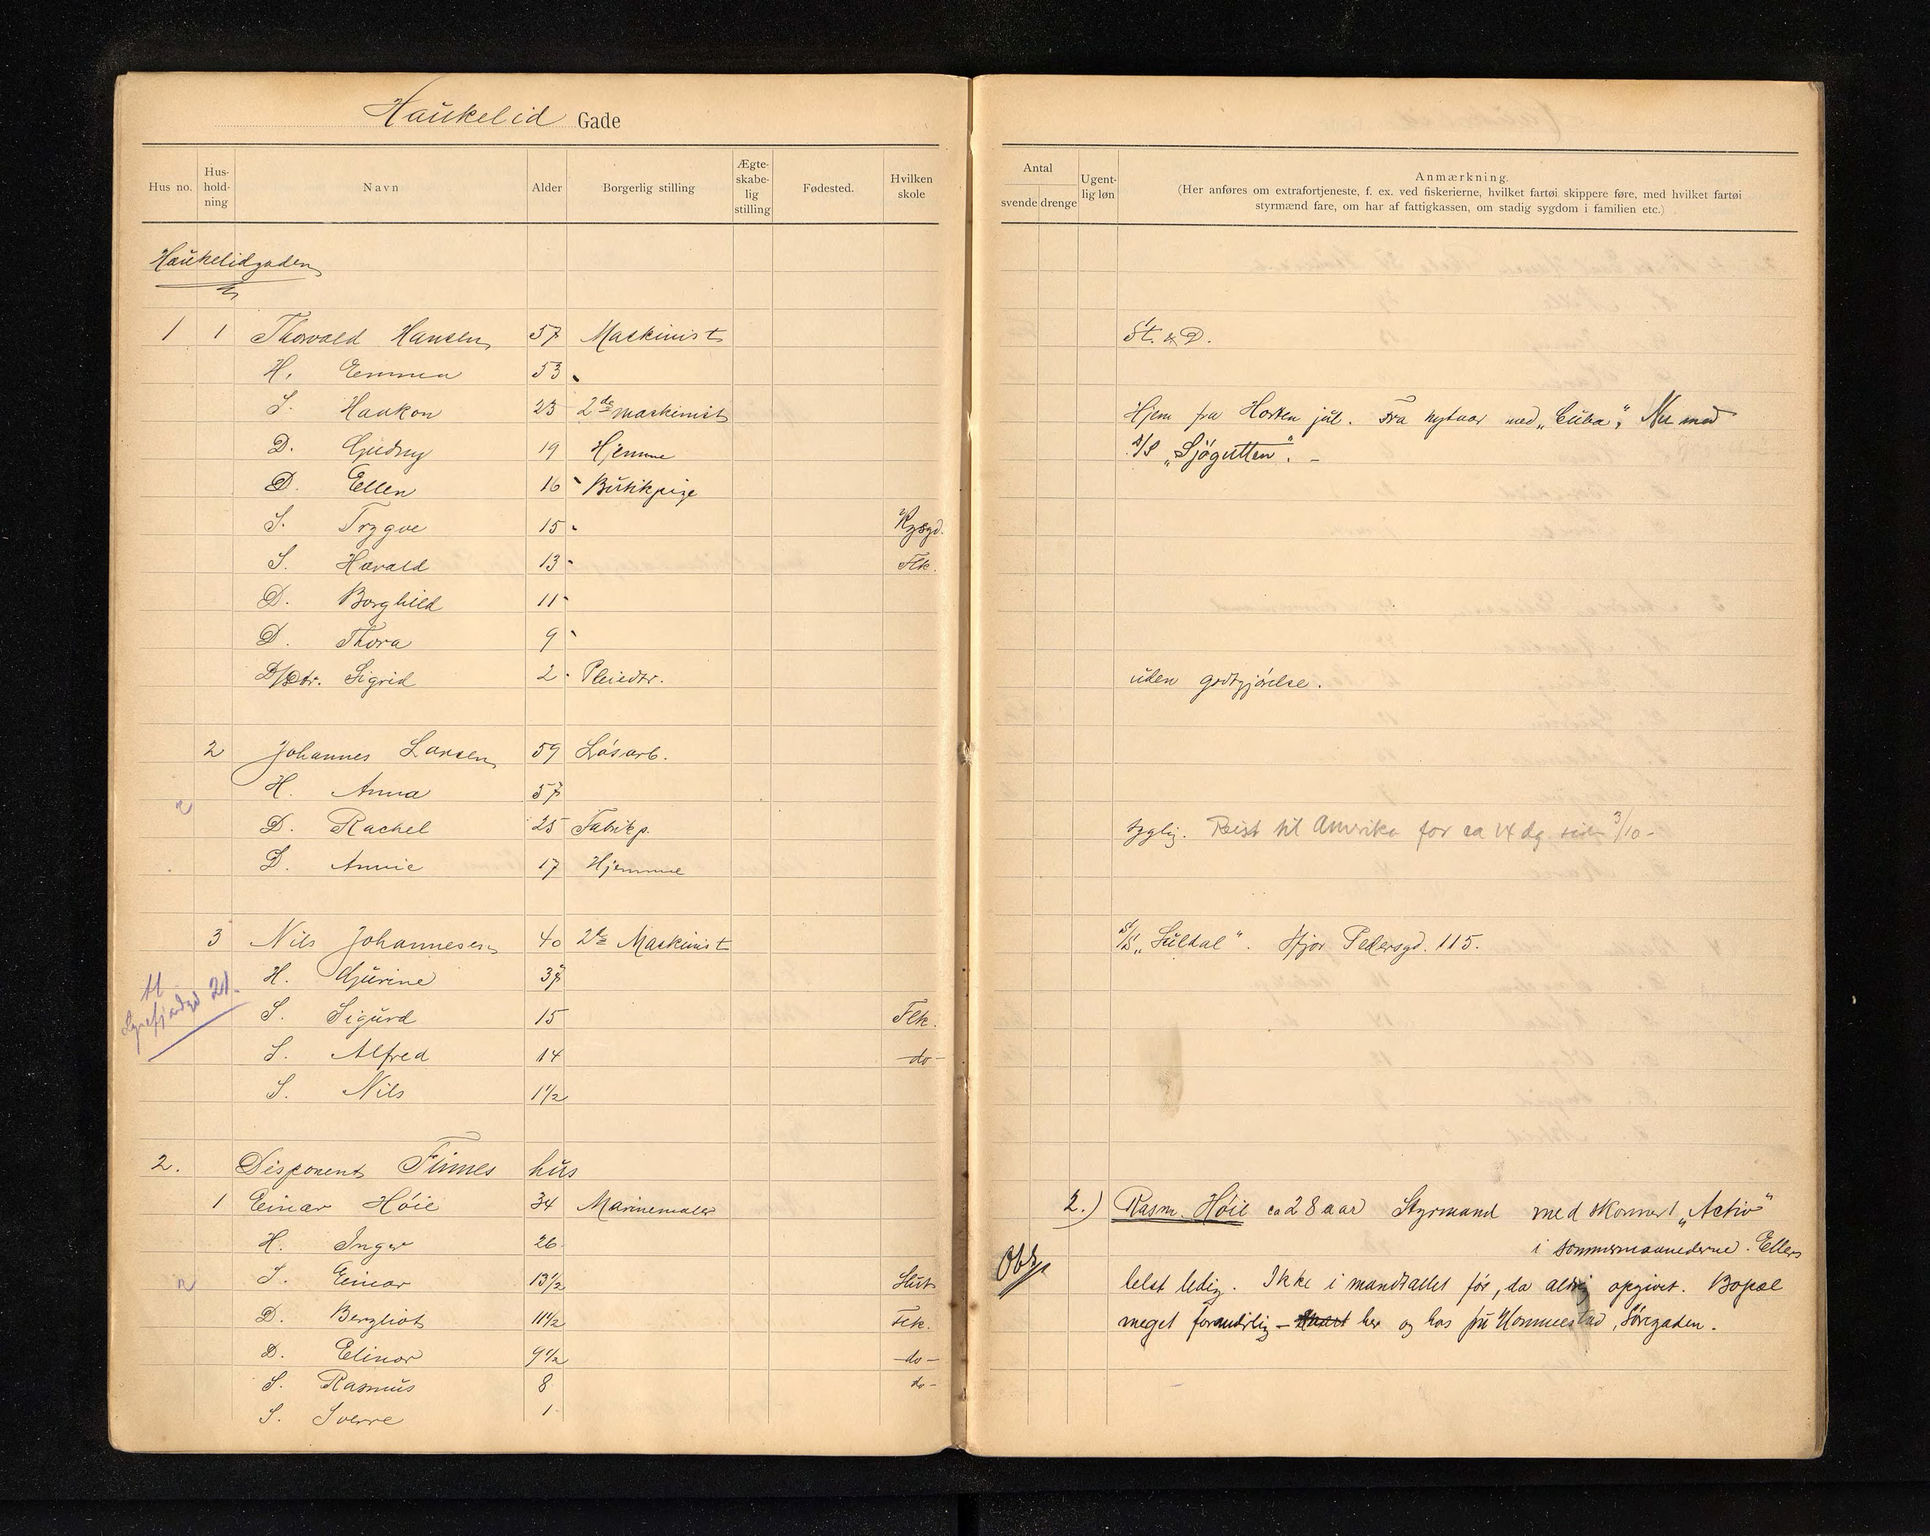 Haukelid Gade
Hus no. Hus-hold-ning Navn Alder Borgerlig stilling Ægte-skabe-lig stilling Fødested. Hvilken skole
Antal svende drenge Ugent-lig løn Anmærkning.
(Her anføres om extrafortjeneste, f. ex. ved fiskerierne, hvilket fartøi skippere føre, med hvilket fartøi
styrmænd fare, om har af fattigkassen, om stadig sygdom i familien etc.)
Haukelidgaden
1 1 Thorvald Hansen 57 Maskinist St. & D.
H. Emma 53
S. Haakon 23 2de maskinist Hjem fra Horten jul. Fra nytaar med „Cuba“, Nu med
D. Gudny 19 Hjemme S/S „Sjøgutten“. –
D. Ellen 16 Butikpige
S. Trygve 15 Kgsgd.
S. Harald 13 Flk.
D. Borghild 11
D. Thora 9
Sigrid 2 Pleiedtr. uden godtgjørelse.
2 Johannes Larsen 59 Løsarb.
H. Anna 57
D. Rachel 25 Fabrikp. syglig. Reist til Amerika for ca 14 dg siden 3/10 –
D. Annie 17 Hjemme
3 Nils Johannesen 40 2de Maskinist S/S „Suldal“. Hjor. Pedersgd. 115.
H. Gurine 37
Lysefjordgd 21.
S. Sigurd 15 Flk.
S. Alfred 14 do –
S. Nils 1 1/2
2. Disponent Finnes hus
1 Einar Høie 34 Marinemaler 2.) Rasm. Høie ca 28 aar Styrmand med skonnert „Activ“
H. Inger 26 i sommermaanederne. Ellers
Obs
S. Einar 13 1/2 helst ledig. Ikke i mandtallet før, da aldrig opgivet. Bopæl
D. Bergliot 11 1/2 Flk. meget foranderlig – snart her og hos fru Hommeland, Søregaden.
D. Elinor 9 1/2 – do –
S. Rasmus 8 do –
S. Sverre 1